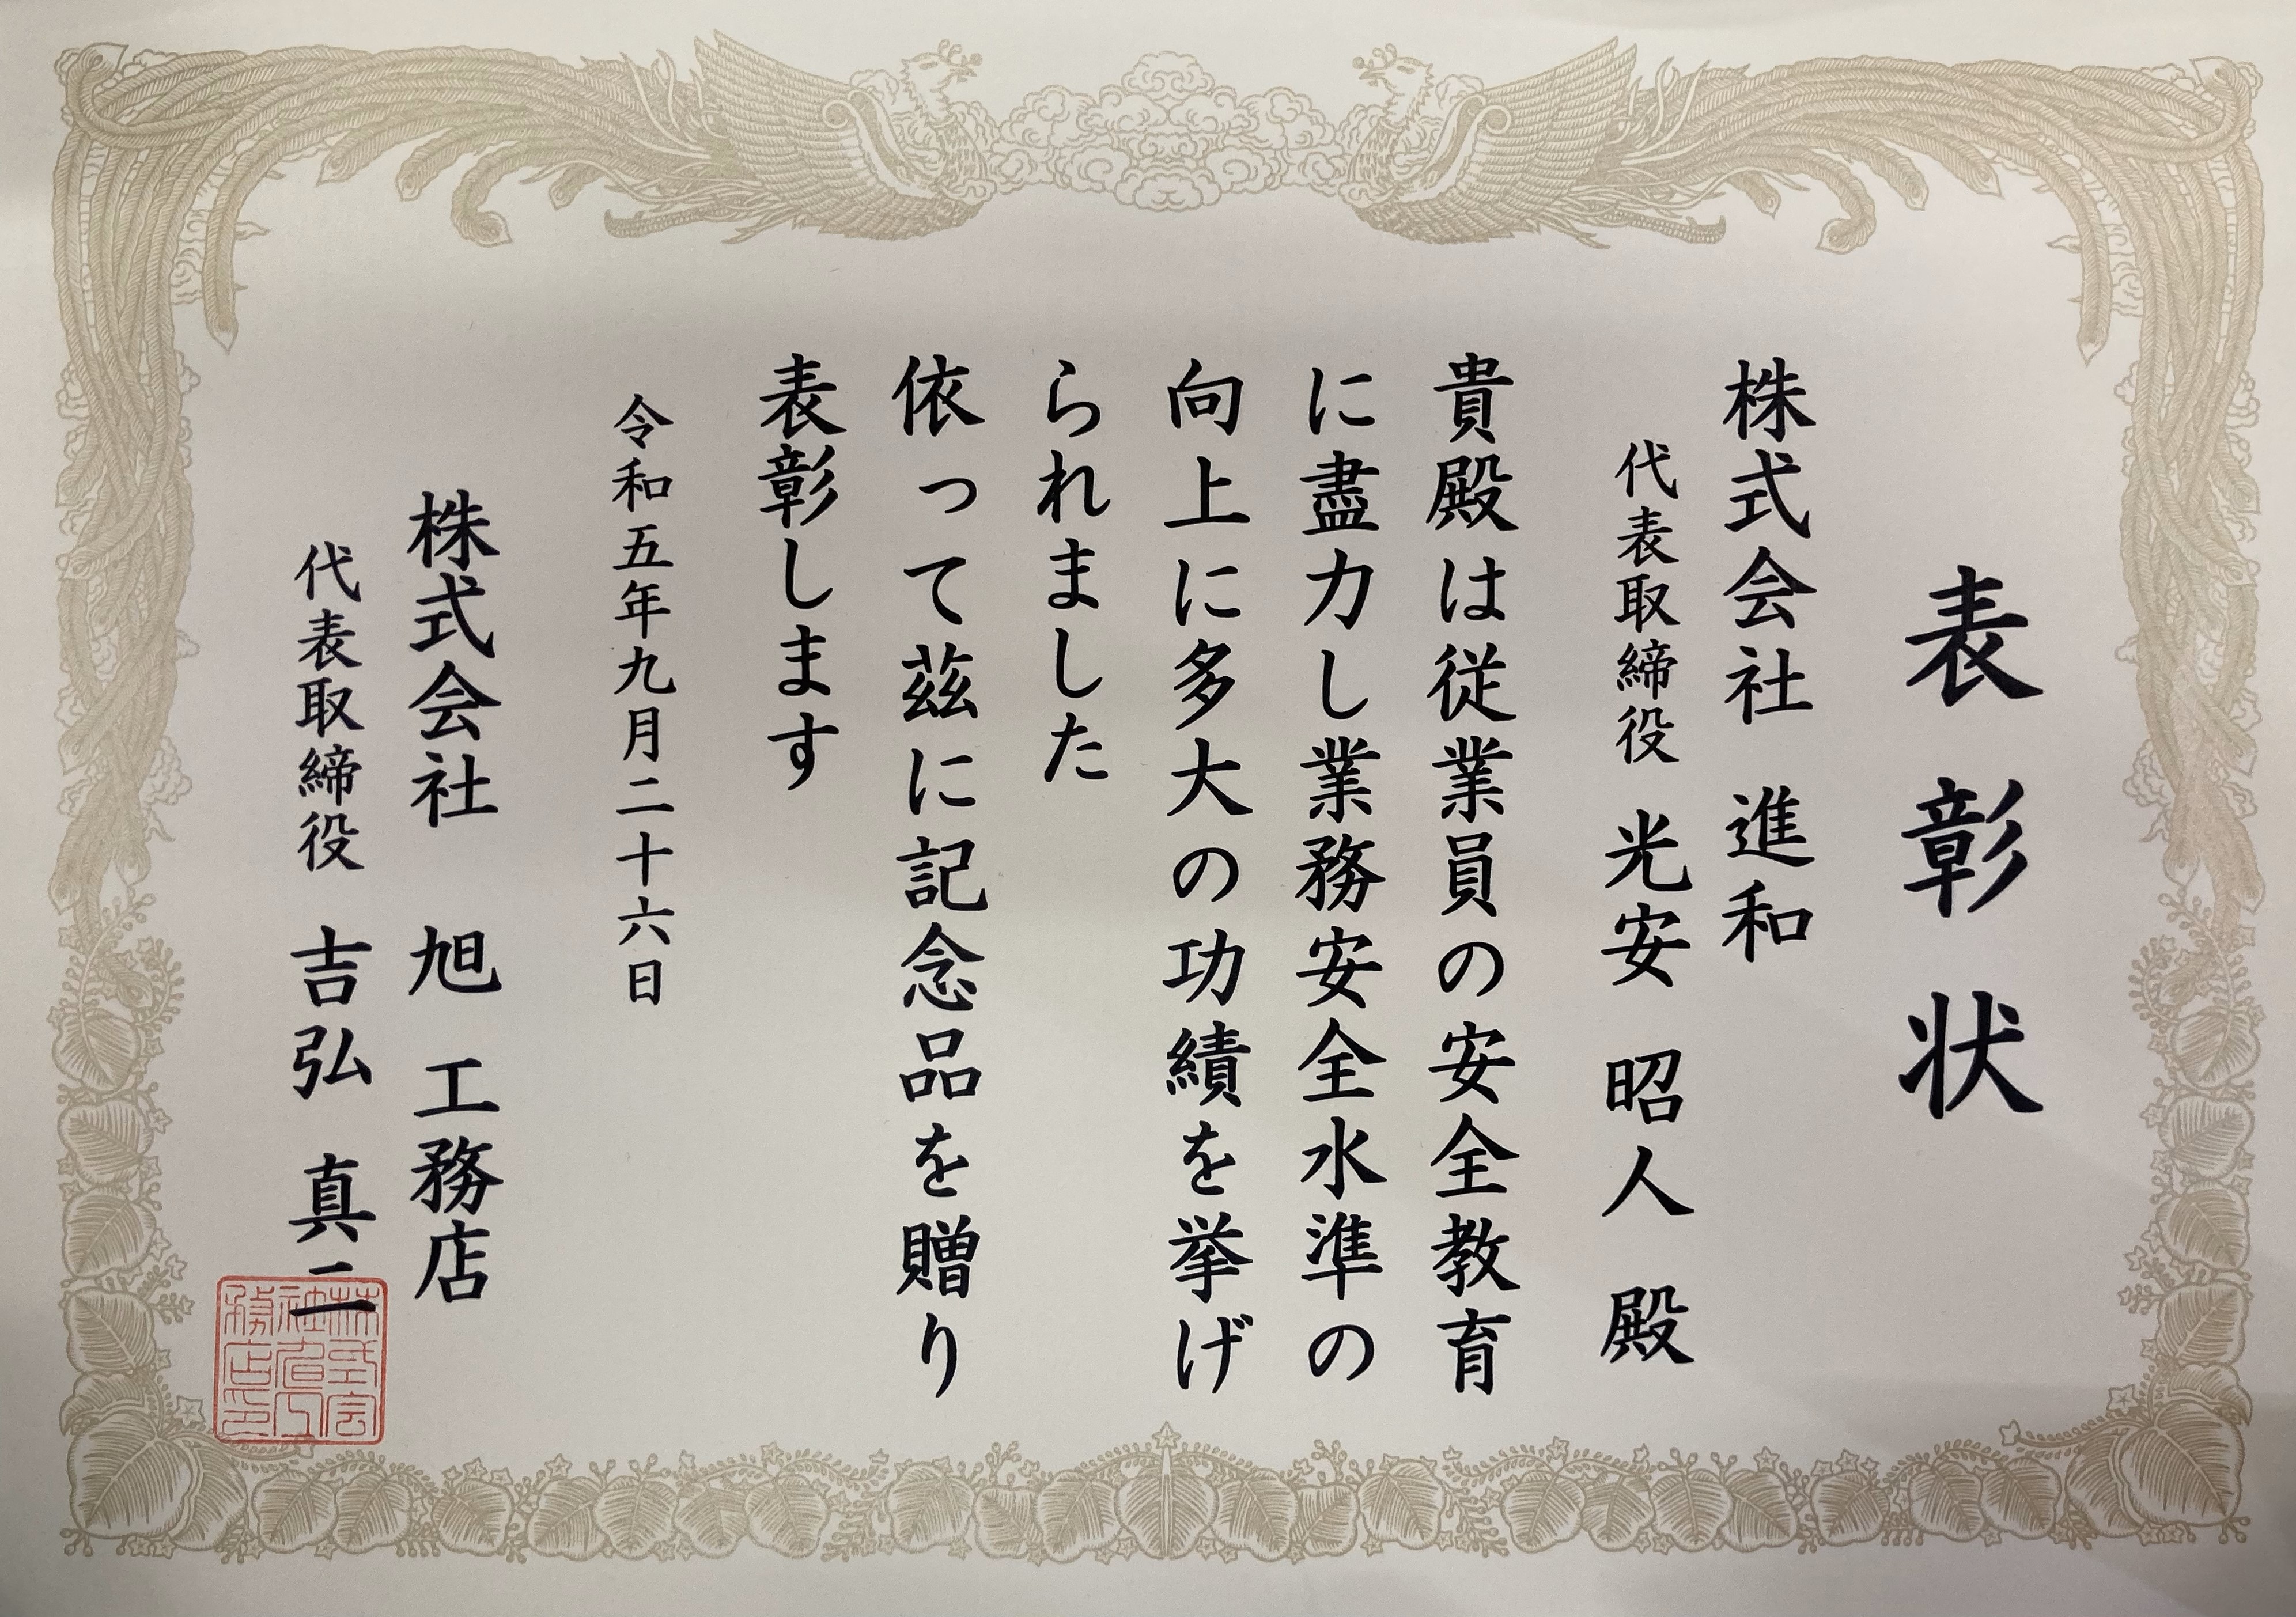 表彰状
株式会社 進和
代表取締役 光安 昭人 殿
貴殿は従業員の安全教育
に盡力し業務安全水準の
向上に多大の功績を挙げ
られました
依って茲に記念品を贈り
表彰します
令和五年九月二十六日
株式会社 旭 工務店
代表取締役 吉弘 真二
株式会
社旭工
務店印